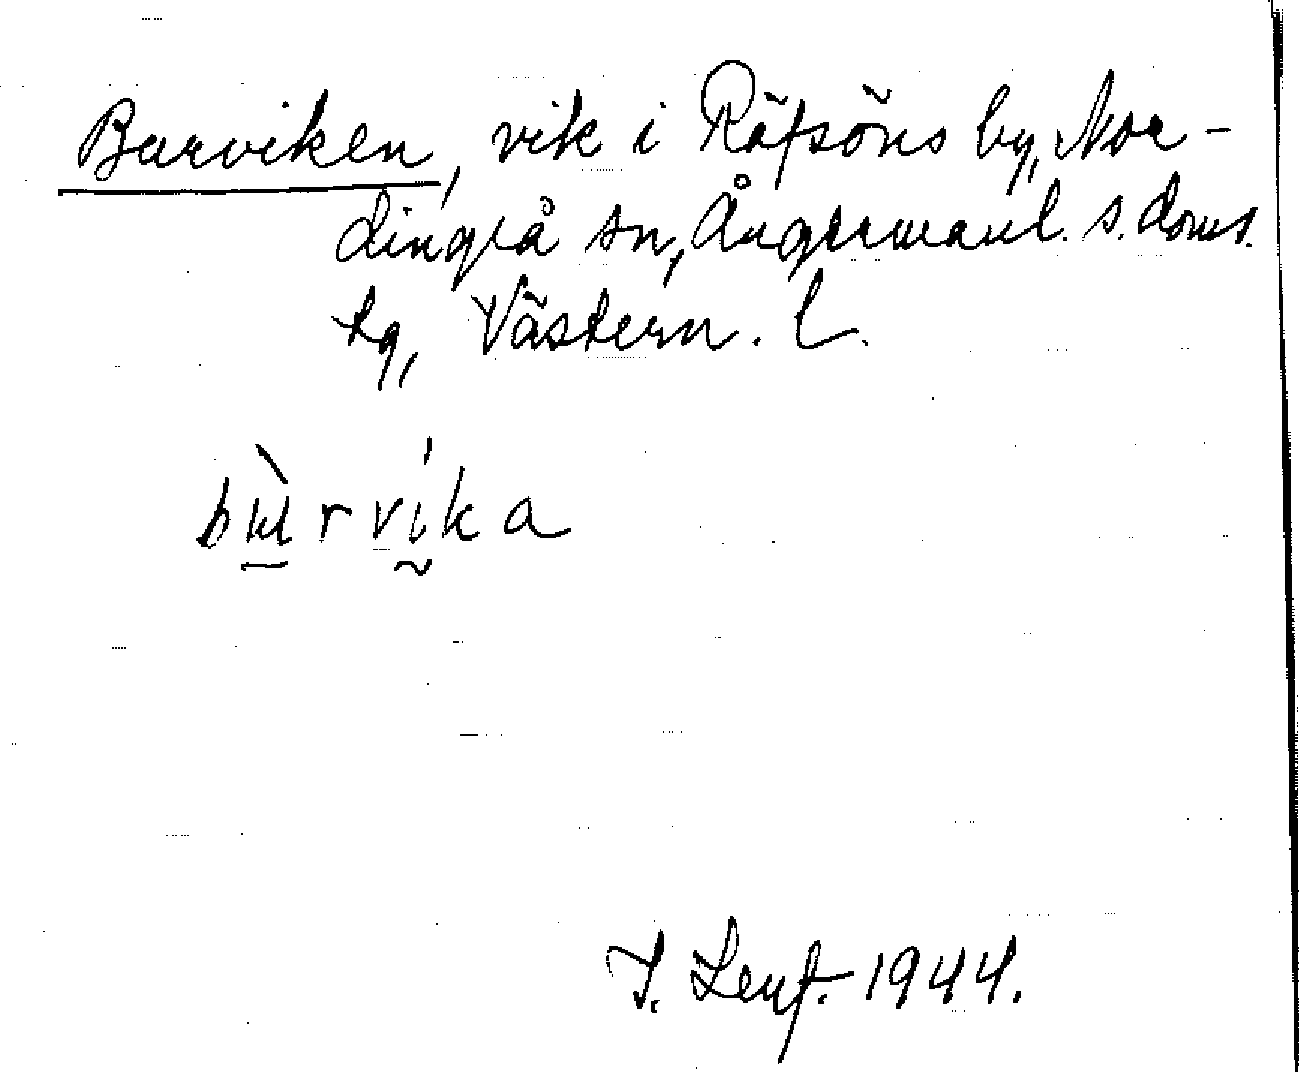 Burviken, vik i Räfsöns by, Nor-
dingrå sn, Ångermanl. s. doms.
tg, Västern. l.
bù̱rvḭ́ka
J. Lenf. 1944.